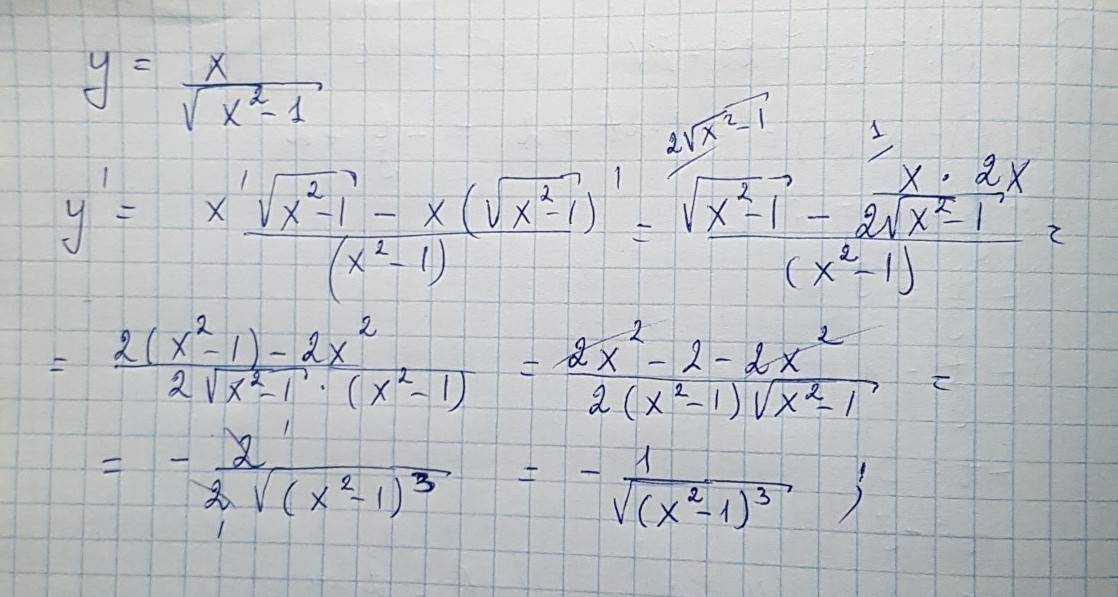 y = x / √(x² - 1)
y' = (x' √(x² - 1) - x (√(x² - 1))') / (x² - 1) = (√(x² - 1) [2√(x² - 1) - (x · 2x) / (2√(x² - 1)) [1) / (x² - 1) =
= (2(x² - 1) - 2x²) / (2√(x² - 1) · (x² - 1)) = (2x² - 2 - 2x²) / (2(x² - 1)√(x² - 1)) =
= - 2 1 / 2 1 √((x² - 1)³) = - 1 / √((x² - 1)³) ;